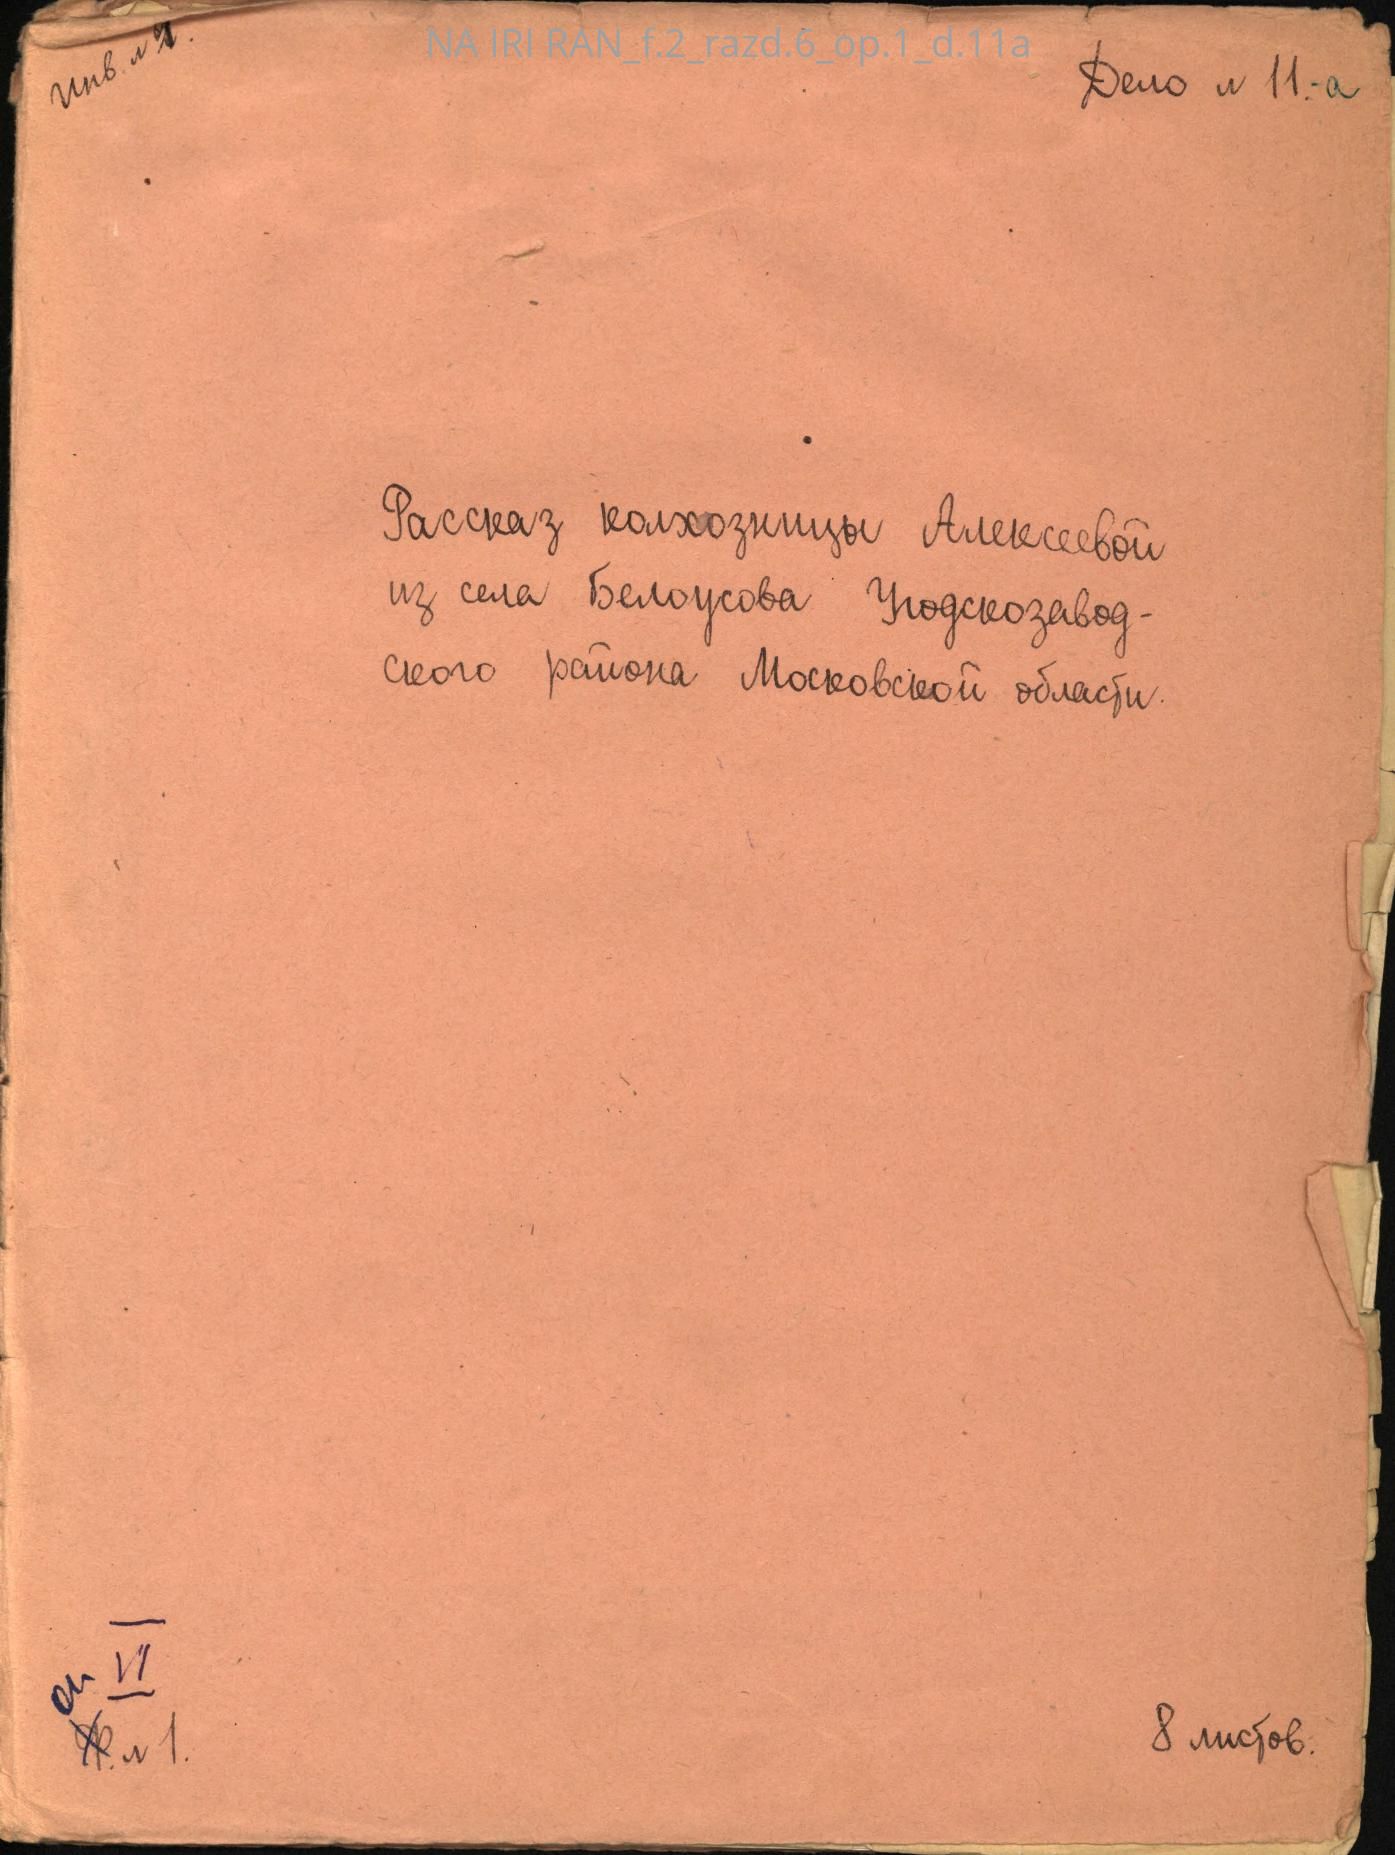 NA IRI RAN_f.2_razd.6_op.1_d.11a
Инв. №
Дело № 11.-а
Рассказ колхозницы Алексеевой
из села Белоусова Угодскозавод-
ского района Московской области.
VI
оп.
№ 1.
8 листов.